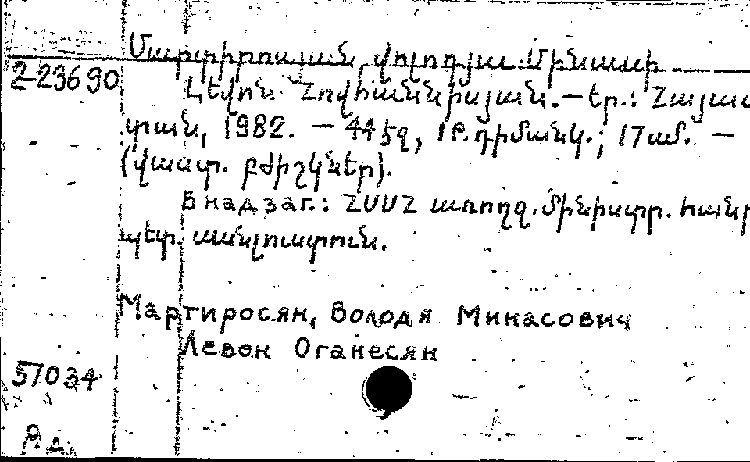 Մարտիրոսյան, Վոլոդյա Մինասի
2-23690
Լևոն Հովհաննիսյան. — Եր.: Հայաս
տան, 1982. — 44 էջ, 1 թ. դիմանկ.; 17 սմ. —
(Վաստ. բժիշկներ).
В надзаг.: ՀՍՍՀ առողջ. մինիստր. Հանր
պետ. սանլուստուն.
Мартиросян, Володя Минасович
Левон Оганесян
57034